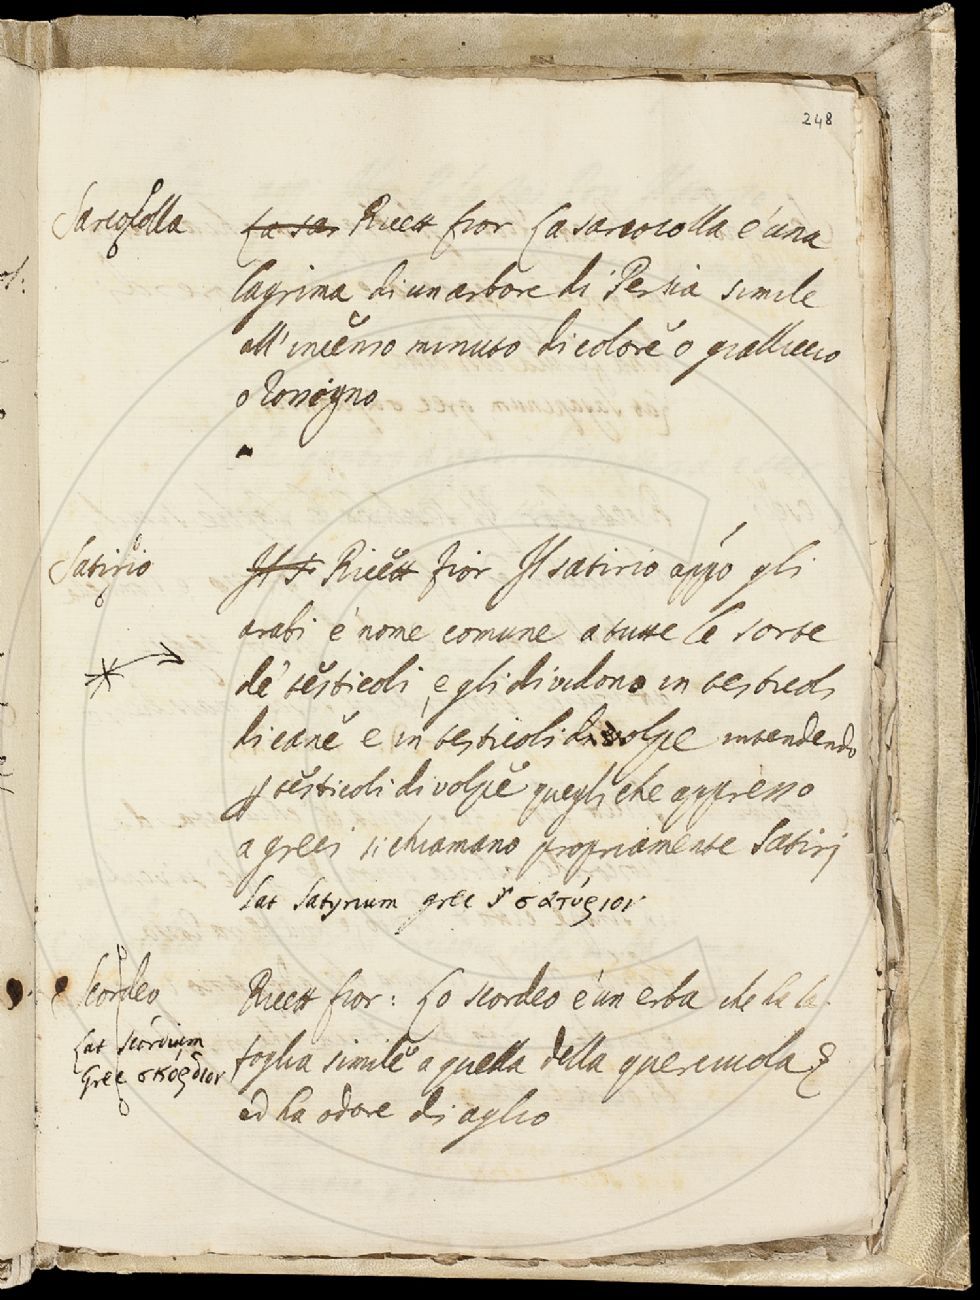 248
Sarcocolla
La sar Ricett fior La sarcocolla é una
lagrima di un arbore di Persia simile
all' incenso minuto di colore o gialliccio
o Rossigno
Satirio
Il S Ricett fior Il satirio appo gli
arabi é nome comune a tutte le sorte
de' testicoli, e gli dividono in testicoli
di cane e in testicoli di volpe intendendo
p testicoli di volpe quegli che appresso
a greci si chiamano propriamente Satirj
Lat Satyrium grec σατύριον
Scordeo
Lat scórdium
Grec σκορδιον
Ricett fior: Lo scordeo é un erba che ha la
foglia simile a quella della querciuola
ed ha odore di aglio